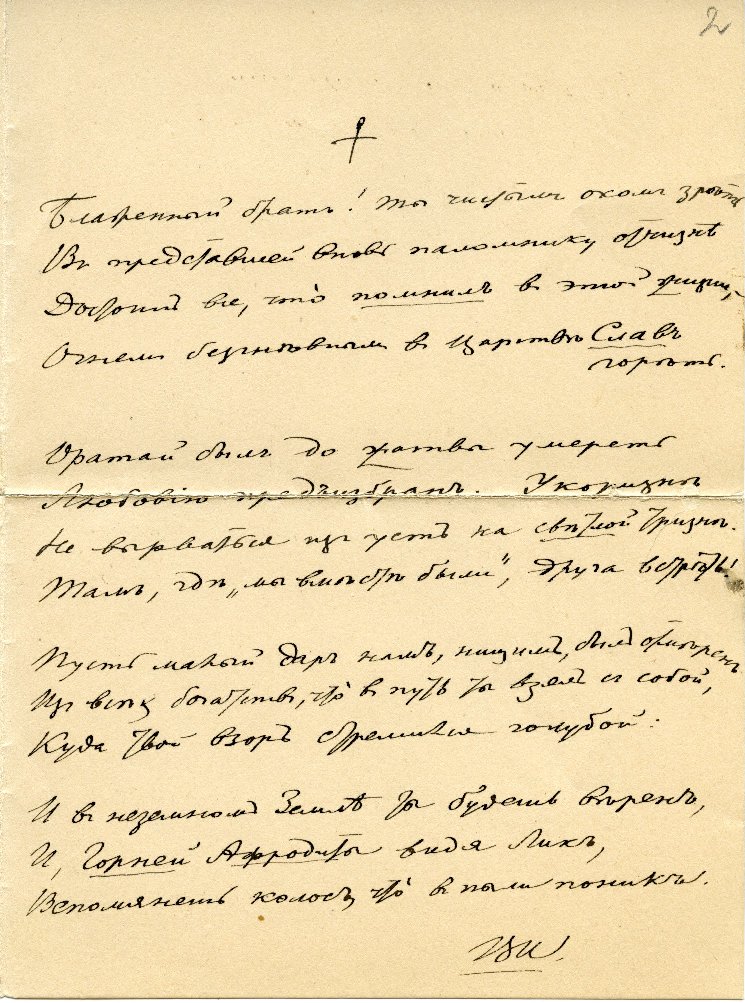 2
Блаженный братъ! Ты чистымъ окомъ зрѣть
Въ представшей вновь паломнику отчизнѣ
Достоинъ все, что̀ помнилъ въ этой жизни,
Огнемъ безгнѣвнымъ въ царствѣ Славъ
горѣть.
Оратай былъ до жатвы умереть
Любовію предъизбранъ. Укоризнѣ
Не вырваться изъ устъ на свѣтлой тризнѣ.
Тамъ, гдѣ „мы вмѣстѣ были", друга встрѣть!
Пусть малый даръ намъ, нищимъ, былъ отмѣренъ
Изъ всѣхъ богатствъ, что̀ въ путь ты взялъ съ собой,
Куда твой взоръ стремился голубой:
И въ неземномъ Землѣ ты будешь вѣренъ,
И, Горней Афродиты видя Ликъ,
Вспомянешь колосъ, что̀ въ пыли поникъ.
ВИ.